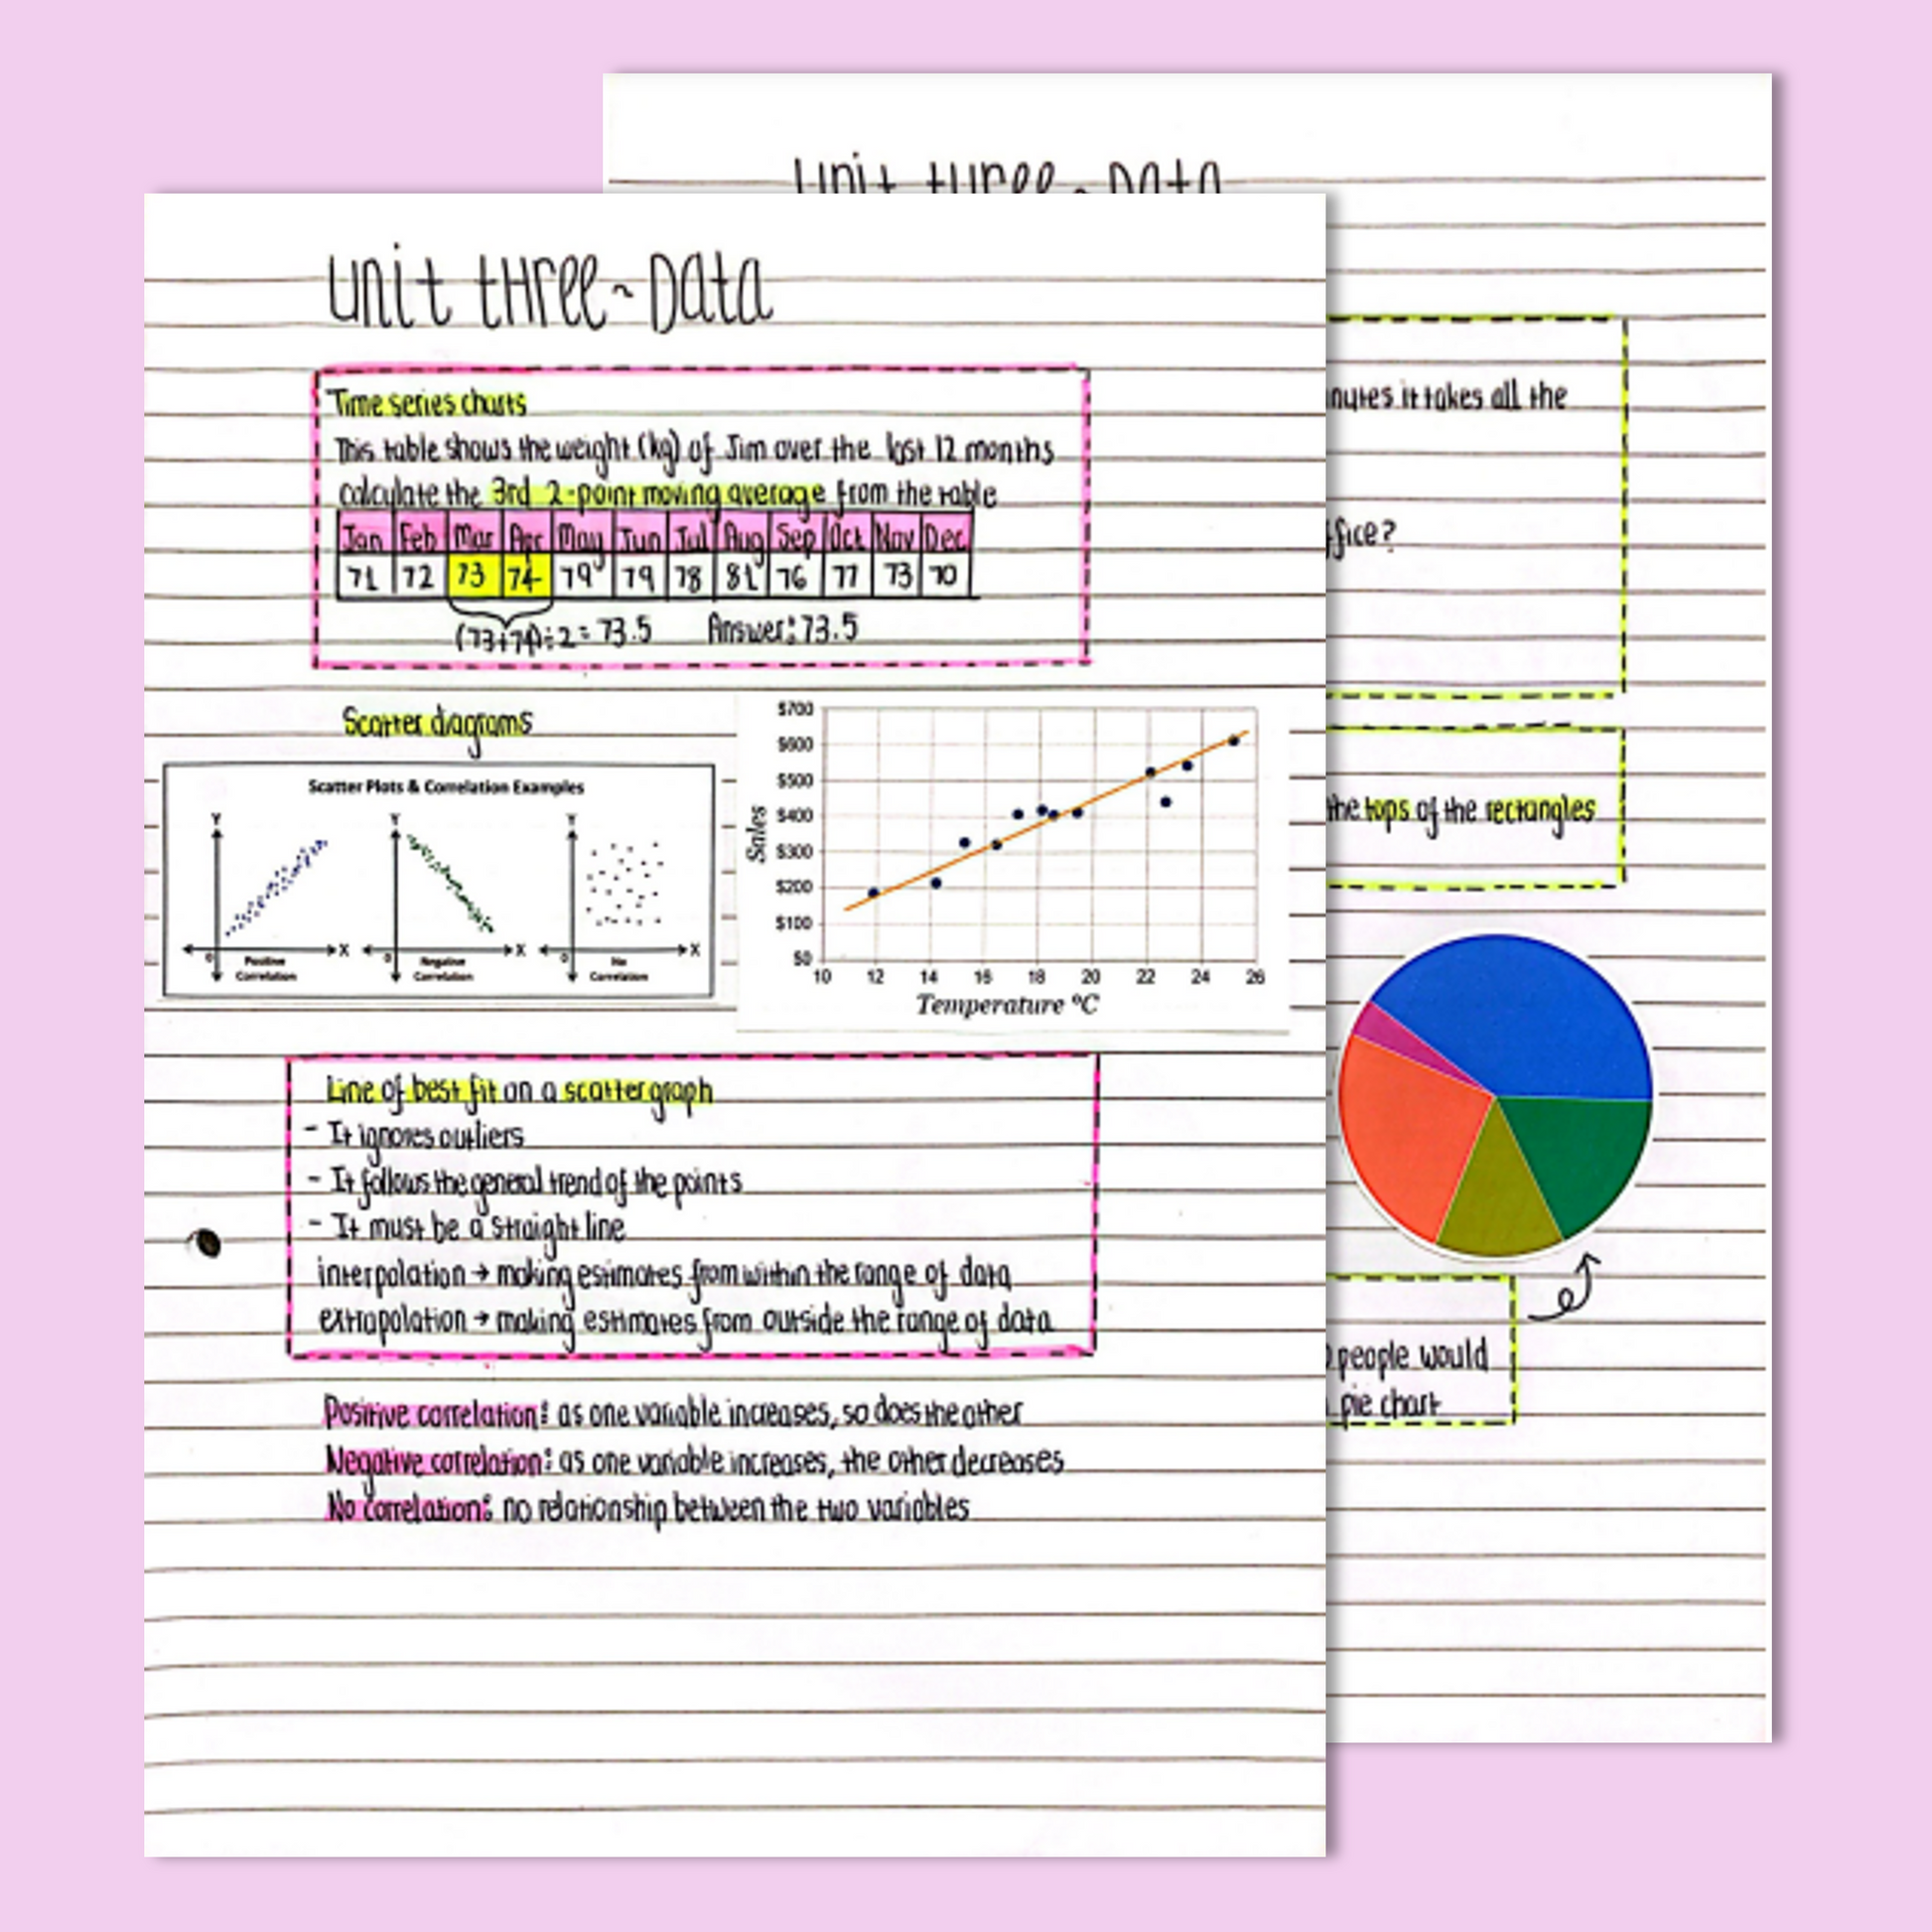 Unit three ~ Data
Unit three ~ Data
Time series charts
This table shows the weight (kg) of Jim over the last 12 months
calculate the 3rd 2-point moving average from the table
Jan Feb Mar Apr May Jun Jul Aug Sep Oct Nov Dec
71 72 73 74 79 79 78 81 76 77 73 70
(73+74)÷2 = 73.5 Answer: 73.5
Scatter diagrams
Scatter Plots & Correlation Examples
Y Y Y
X X X
0 0 0
Positive Correlation
Negative Correlation
No Correlation
$700
$600
$500
$400
$300
$200
$100
$0
Sales
10 12 14 16 18 20 22 24 26
Temperature ºC
Line of best fit on a scatter graph
- It ignores outliers
- It follows the general trend of the points
- It must be a straight line
interpolation → making estimates from within the range of data
extrapolation → making estimates from outside the range of data
Positive correlation: as one variable increases, so does the other
Negative correlation: as one variable increases, the other decreases
No correlation: no relationship between the two variables
nutes it takes all the
ffice?
the tops of the rectangles
people would
pie chart